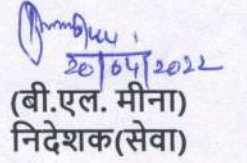 20/04/2022
(बी.एल. मीना)
निदेशक(सेवा)